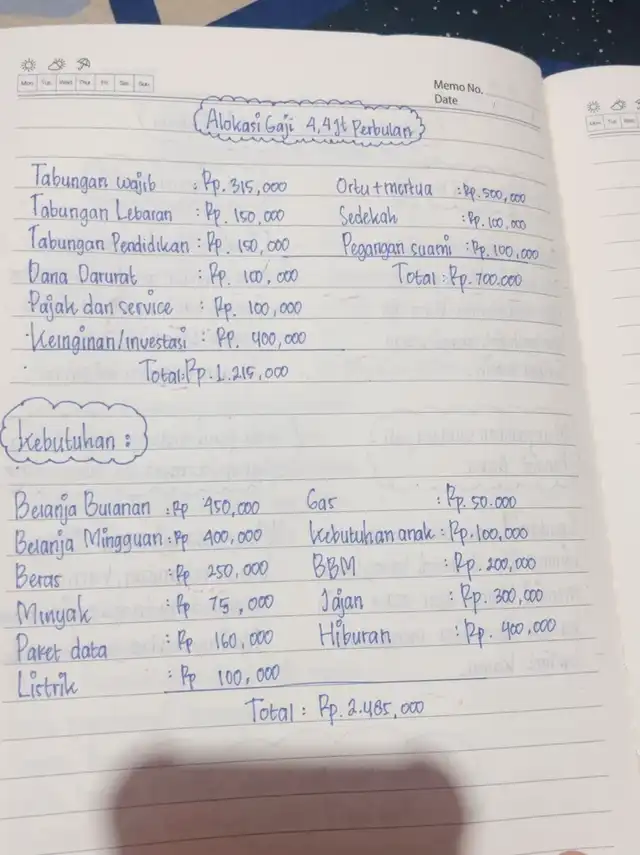 Mon Tue Wed Thu Fri Sat Sun
Memo No.
Date
Alokasi Gaji 4,4Jt Perbulan
Tabungan wajib : Rp. 315,000
Tabungan Lebaran : Rp. 150,000
Tabungan Pendidikan : Rp. 150,000
Dana Darurat : Rp. 100,000
Pajak dan service : Rp. 100,000
Keinginan/investasi : Rp. 400,000
Total: Rp. 1.215,000
Ortu + mertua : Rp. 500,000
Sedekah : Rp. 100,000
Pegangan suami : Rp. 100,000
Total : Rp. 700.000
Kebutuhan :
Belanja Bulanan : Rp 450,000
Belanja Mingguan : Rp 400,000
Beras : Rp 250,000
Minyak : Rp 75,000
Paket data : Rp 160,000
Listrik : Rp 100,000
Gas : Rp. 50.000
Kebutuhan anak : Rp. 100,000
BBM : Rp. 200,000
Jajan : Rp. 300,000
Hiburan : Rp. 400,000
Total : Rp. 2.485,000
Mon Tue Wed